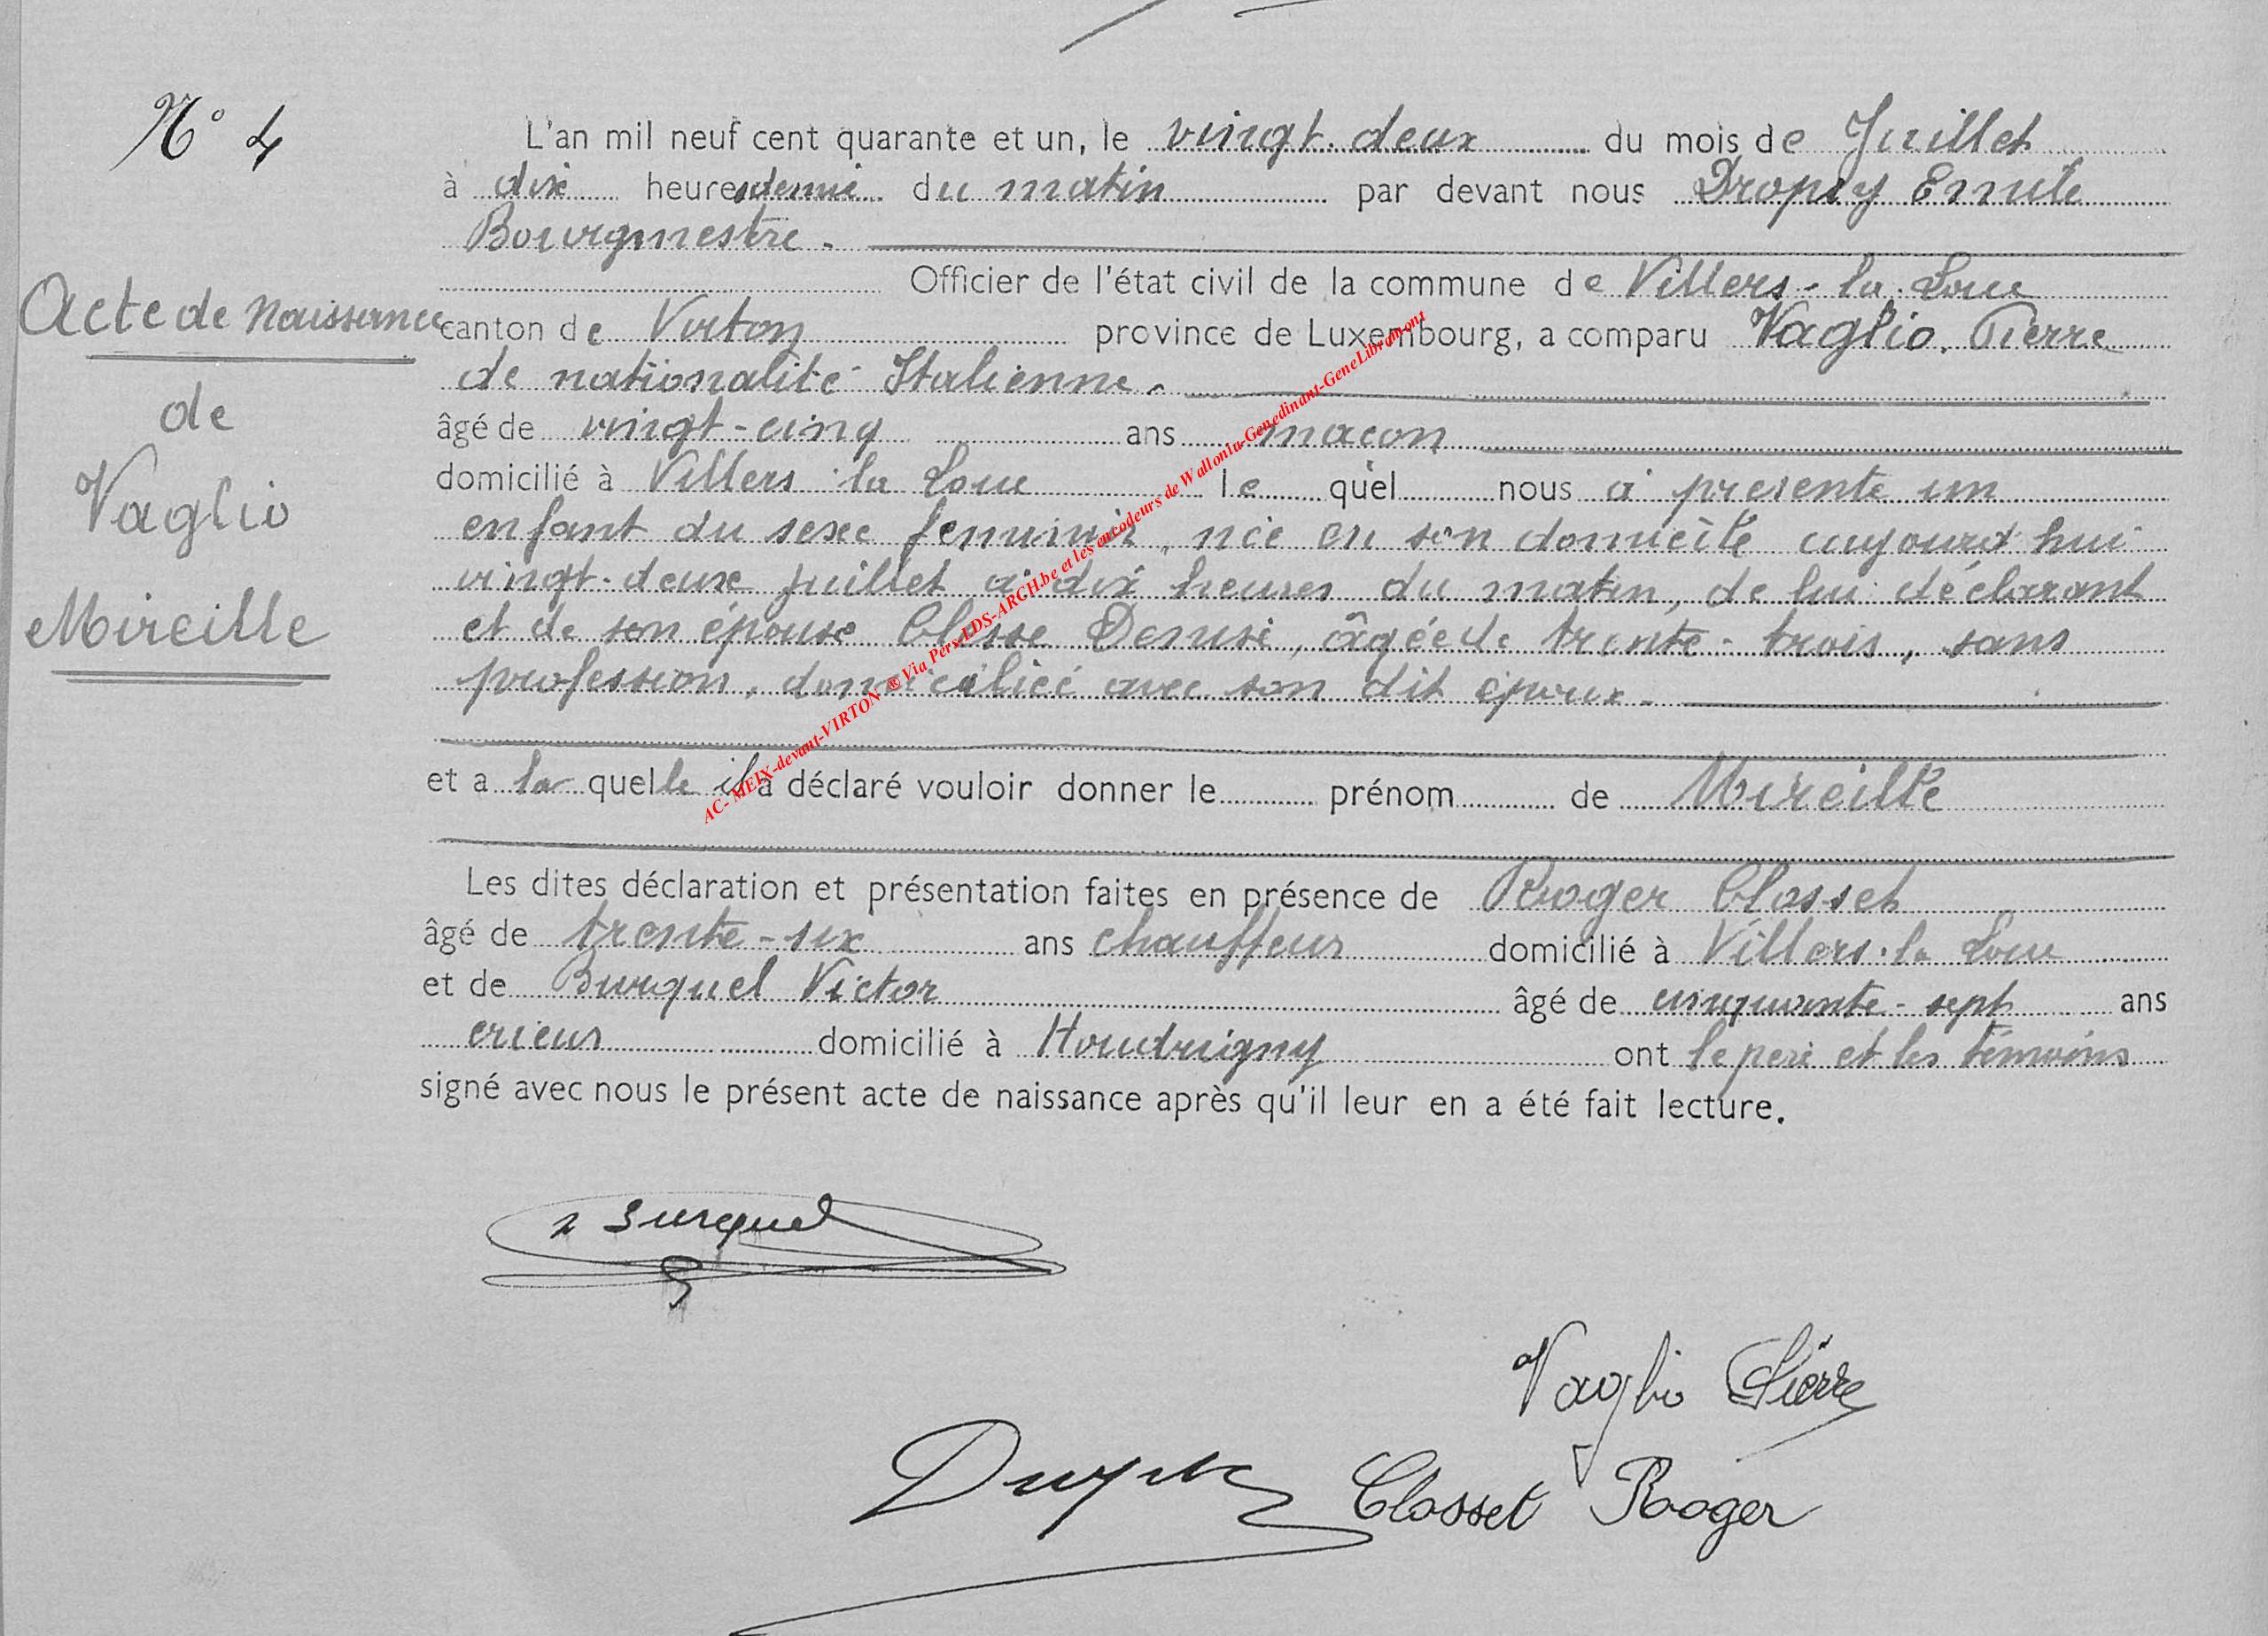 N° 4
Acte de Naissance
de
Vaglio
Mireille
L'an mil neuf cent quarante et un, le vingt-deux du mois de Juillet
à dix heures demie du matin par devant nous Dropsy Emile
Bourgmestre.
Officier de l'état civil de la commune de Villers-la-Loue
canton de Virton province de Luxembourg, a comparu Vaglio, Pierre
de nationalité Italienne.
âgé de vingt-cinq ans maçon
domicilié à Villers-la-Loue le quel nous a présenté un
enfant du sexe féminin, née en son domicile aujourd'hui
vingt-deux juillet à dix heures du matin, de lui déclarant
et de son épouse Closse Denise, âgée de trente-trois, sans
profession, domiciliée avec son dit époux.
et a la quelle il a déclaré vouloir donner le prénom de Mireille
Les dites déclaration et présentation faites en présence de Roger Closset
âgé de trente-six ans chauffeur domicilié à Villers-la-Loue
et de Burquel Victor âgé de cinquante-sept ans
crieur domicilié à Houdrigny ont le père et les témoins
signé avec nous le présent acte de naissance après qu'il leur en a été fait lecture.
Burquel
Vaglio Pierre
Closset Roger
AC- MEIX-devant-VIRTON ® Via Pers-LDS-ARCH.be et les encodeurs de Wallonia-Genedinant-GeneLibramont